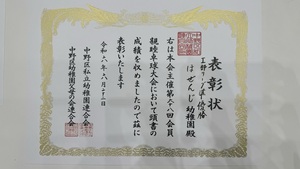 表彰状
Ⅱ部リーグ 準優勝
ほぜんじ幼稚園殿
右は本会主催第六八回会員
親睦卓球大会において頭書の
成績を収めましたので茲に
表彰いたします
令和六年六月二十一日
中野区私立幼稚園連合会
中野区幼稚園父母の会連合会